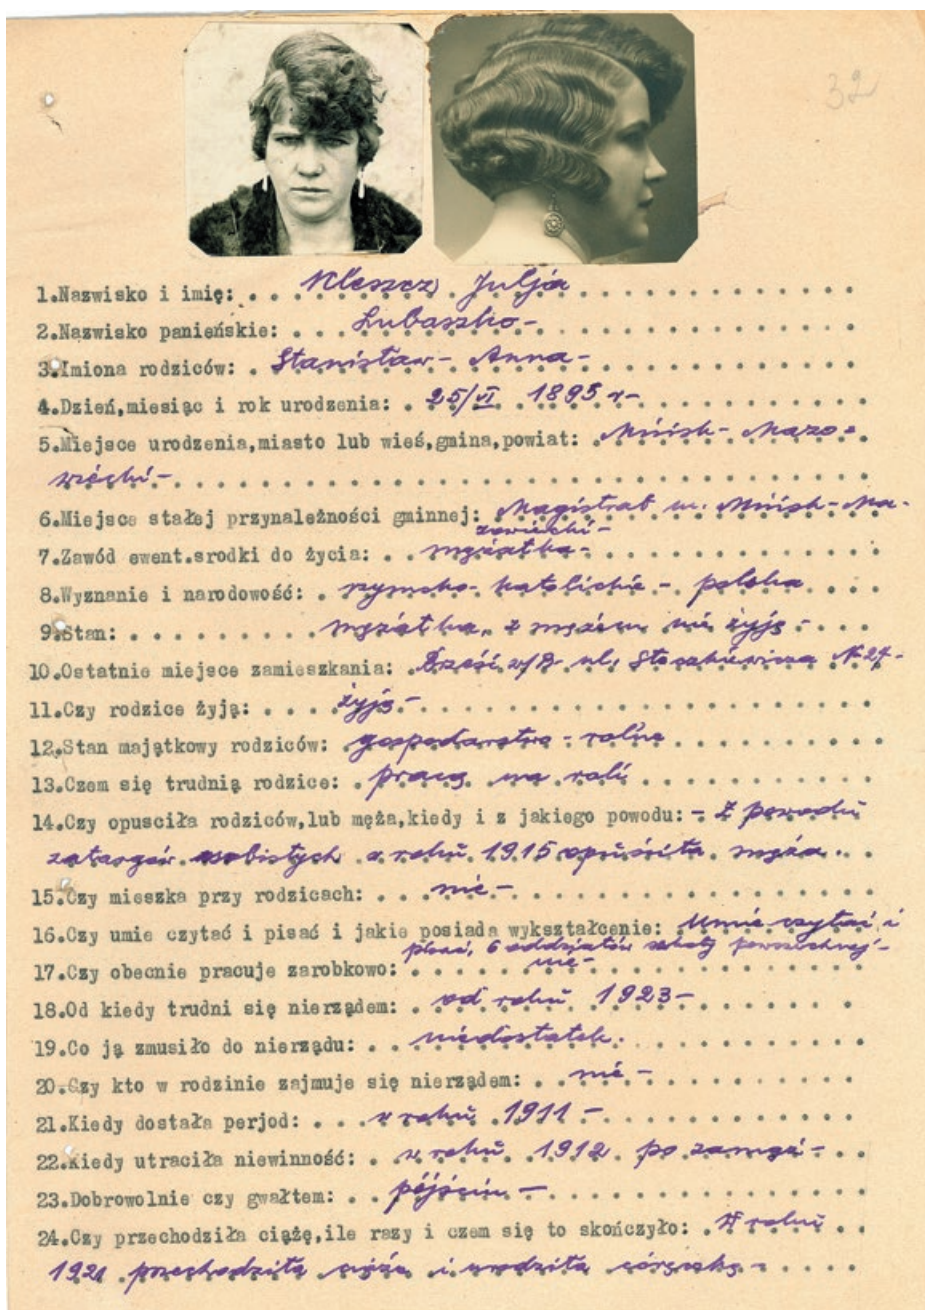 32
1.Nazwisko i imię: Kleszcz Julja
2.Nazwisko panieńskie: Lubaszko-
3.Imiona rodziców: Stanisław- Anna-
4.Dzień,miesiąc i rok urodzenia: 25/VI 1895 r-
5.Miejsce urodzenia,miasto lub wieś,gmina,powiat: Mińsk- Mazo=
wiecki-
6.Miejsce stałej przynależności gminnej: Magistrat m. Mińsk-Ma-
zowiecki-
7.Zawód ewent.srodki do życia: mężatka-
8.Wyznanie i narodowość: rzymsko-katolickie - polska
9.Stan: mężatka, z mężem nie żyję-
10.Ostatnie miejsce zamieszkania: Brześć n/B ul. N-27-
11.Czy rodzice żyją: żyją-
12.Stan majątkowy rodziców: gospodarstwo-rolne
13.Czem się trudnią rodzice: pracą na roli
14.Czy opusciła rodziców,lub męża,kiedy i z jakiego powodu:- Z powodu
zatargów osobistych w roku 1915 opuściła męża.
15.Czy mieszka przy rodzicach: nie-
16.Czy umie czytać i pisać i jakie posiada wykształcenie: Umie czytać i
pisać, 6 oddziałów szkoły powszechnej-
17.Czy obecnie pracuje zarobkowo: nie-
18.Od kiedy trudni się nierządem: od roku 1923-
19.Co ją zmusiło do nierządu: niedostatek.
20.Czy kto w rodzinie zajmuje się nierządem: nie-
21.Kiedy dostała perjod: w roku 1911-
22.Kiedy utraciła niewinność: w roku 1912 po zamąż-
23.Dobrowolnie czy gwałtem: pójściu-
24.Czy przechodziła ciążę,ile razy i czem się to skończyło: W roku
1921 przechodziła ciążę i urodziła córeczkę-